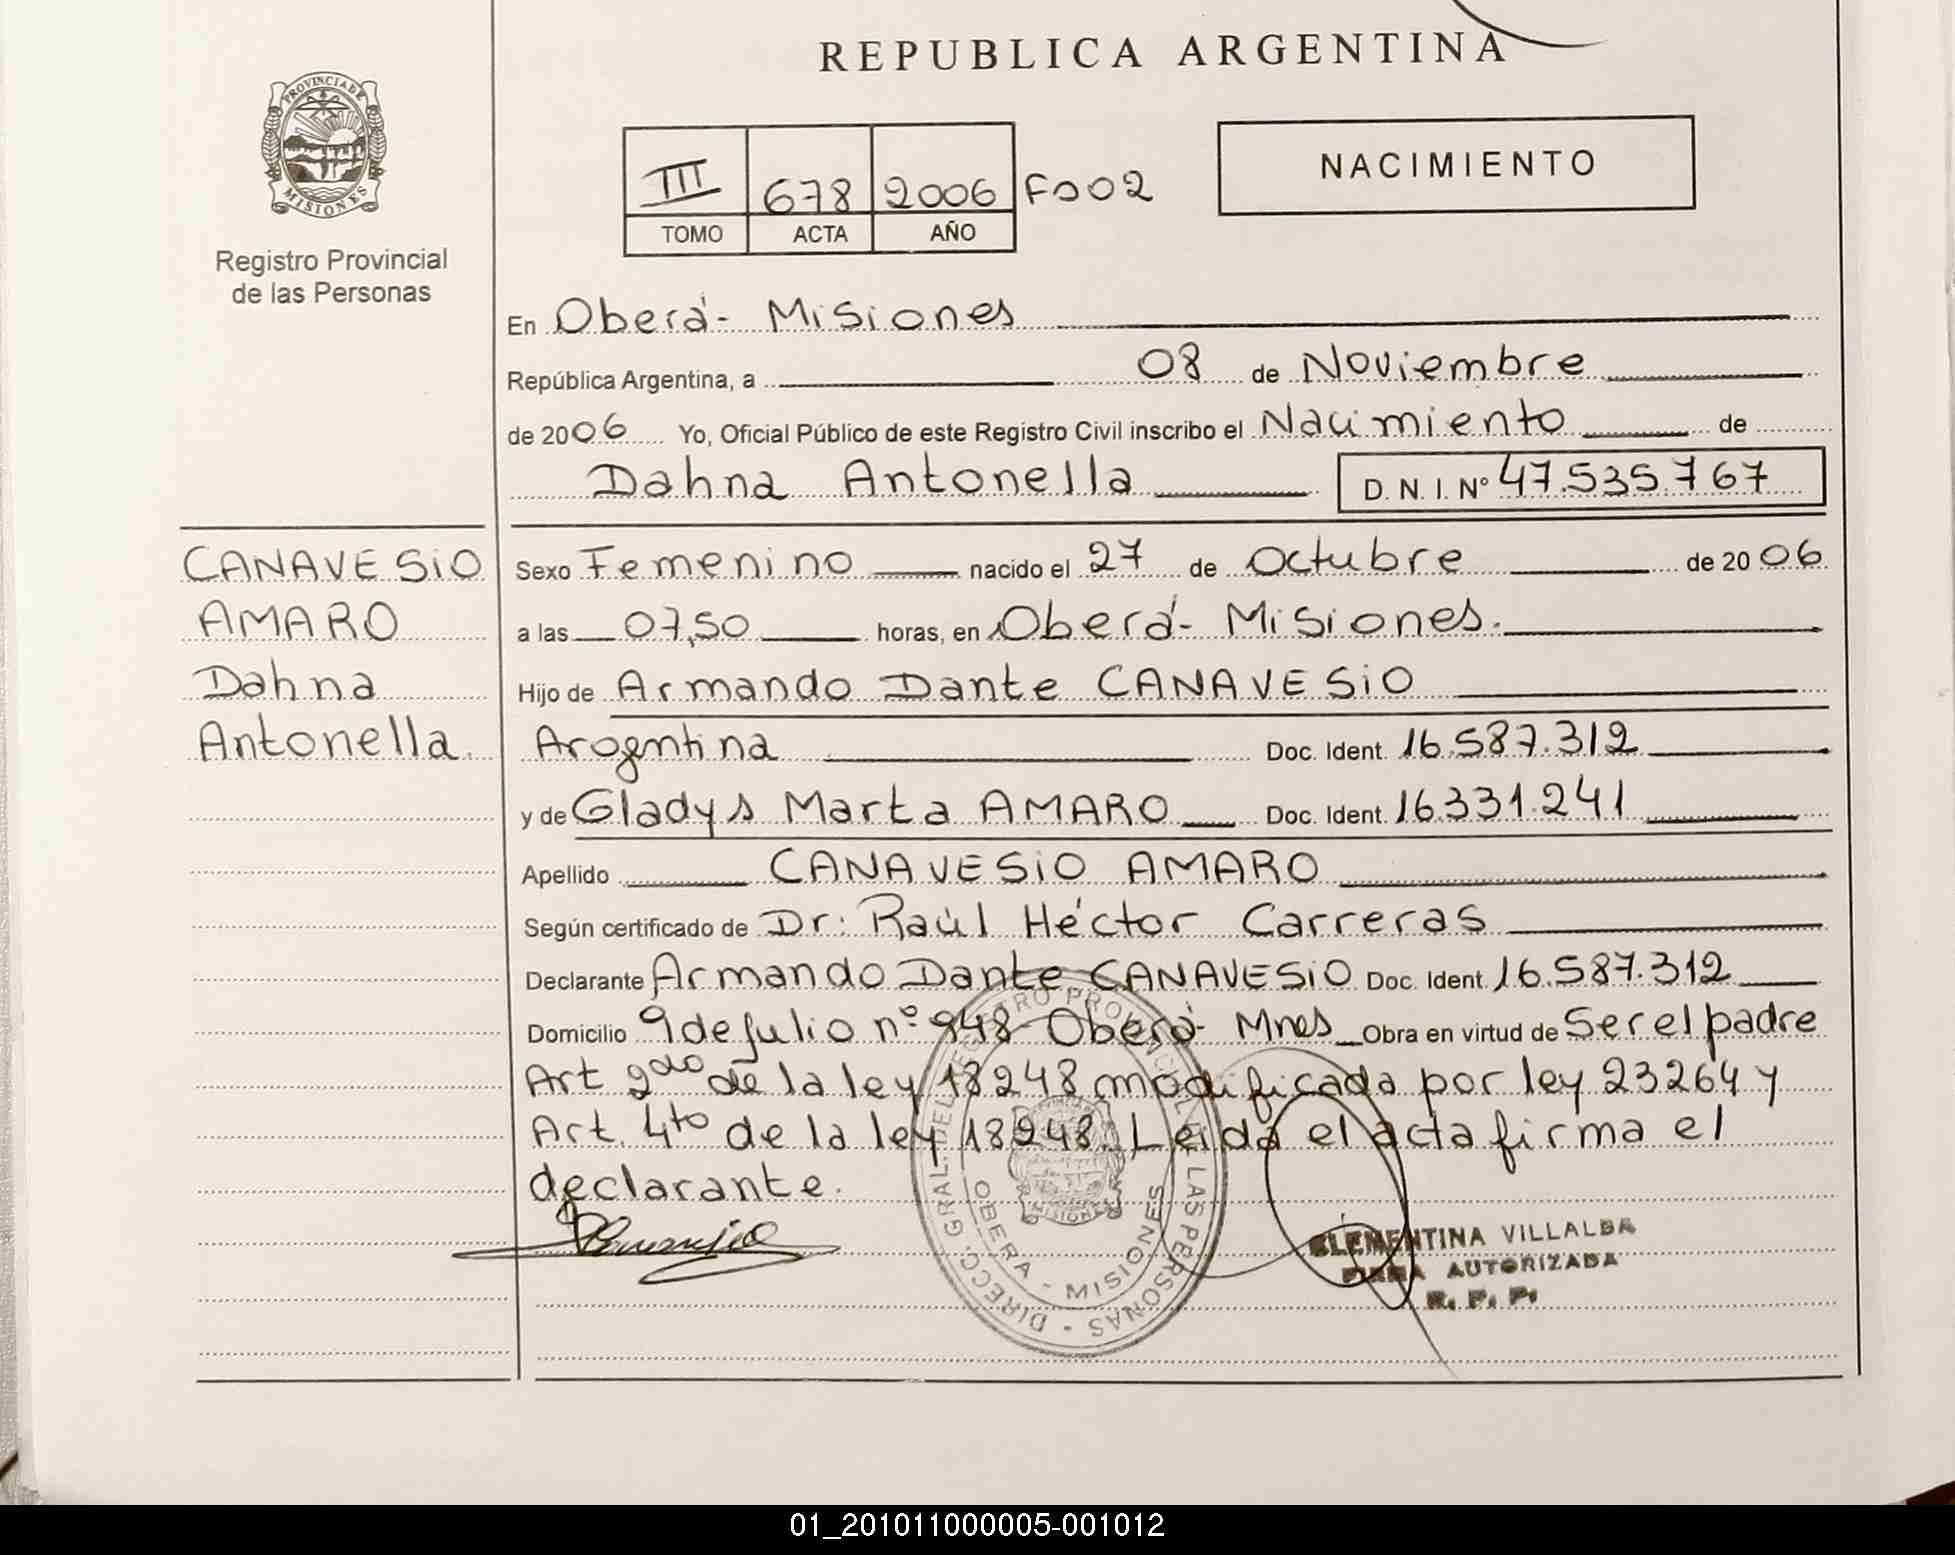 REPUBLICA ARGENTINA
PROVINCIA DE MISIONES
Registro Provincial
de las Personas
III 678 2006 F002
TOMO ACTA AÑO
NACIMIENTO
En Oberá- Misiones
República Argentina, a 08 de Noviembre
de 2006 Yo, Oficial Público de este Registro Civil inscribo el Nacimiento de
Dahna Antonella D. N. I. Nº 47.535.767
CANAVESiO
AMARO
Dahna
Antonella.
Sexo Femenino nacido el 27 de Octubre de 2006
a las 07,50 horas, en Oberá- Misiones.
Hijo de Armando Dante CANAVESiO
Arogentina Doc. Ident. 16.587.312
y de Gladys Marta AMARO Doc. Ident. 16.331.241
Apellido CANAVESiO AMARO
Según certificado de Dr: Raúl Héctor Carreras
Declarante Armando Dante CANAVESiO Doc. Ident. 16.587.312
Domicilio 9 de Julio nº 948 Oberá- Mnes Obra en virtud de Ser el padre
Art 2do de la ley 18248 modificada por ley 23264 y
Art. 4to de la ley 18248. Leida el acta firma el
declarante.
DIRECC. GRAL. DEL REGISTRO PROVINCIAL DE LAS PERSONAS
OBERA - MISIONES
CLEMENTINA VILLALBA
FIRMA AUTORIZADA
R. P. P.
01_201011000005-001012